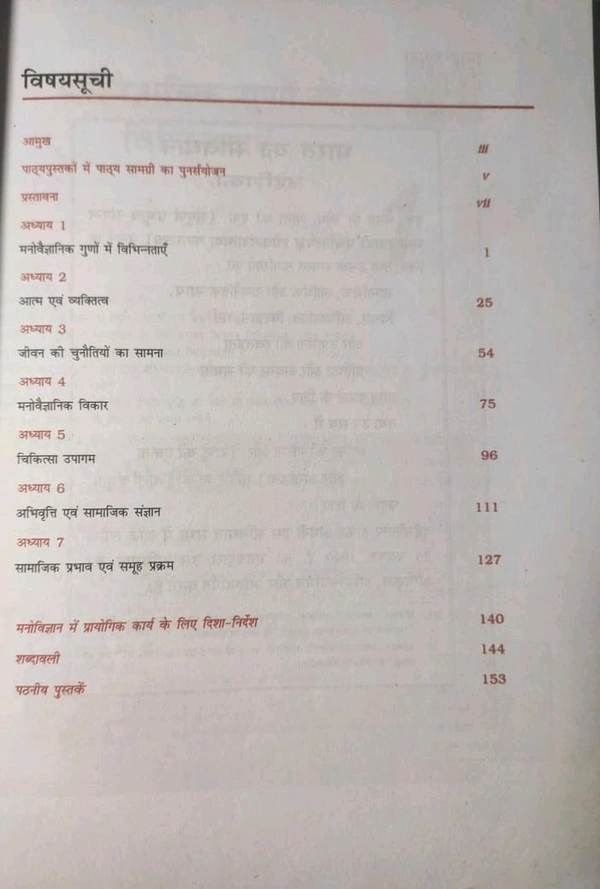 विषयसूची
आमुख iii
पाठ्यपुस्तकों में पाठ्य सामग्री का पुनर्संयोजन v
प्रस्तावना vii
अध्याय 1
मनोवैज्ञानिक गुणों में विभिन्नताएँ 1
अध्याय 2
आत्म एवं व्यक्तित्व 25
अध्याय 3
जीवन की चुनौतियों का सामना 54
अध्याय 4
मनोवैज्ञानिक विकार 75
अध्याय 5
चिकित्सा उपागम 96
अध्याय 6
अभिवृत्ति एवं सामाजिक संज्ञान 111
अध्याय 7
सामाजिक प्रभाव एवं समूह प्रक्रम 127
मनोविज्ञान में प्रायोगिक कार्य के लिए दिशा-निर्देश 140
शब्दावली 144
पठनीय पुस्तकें 153